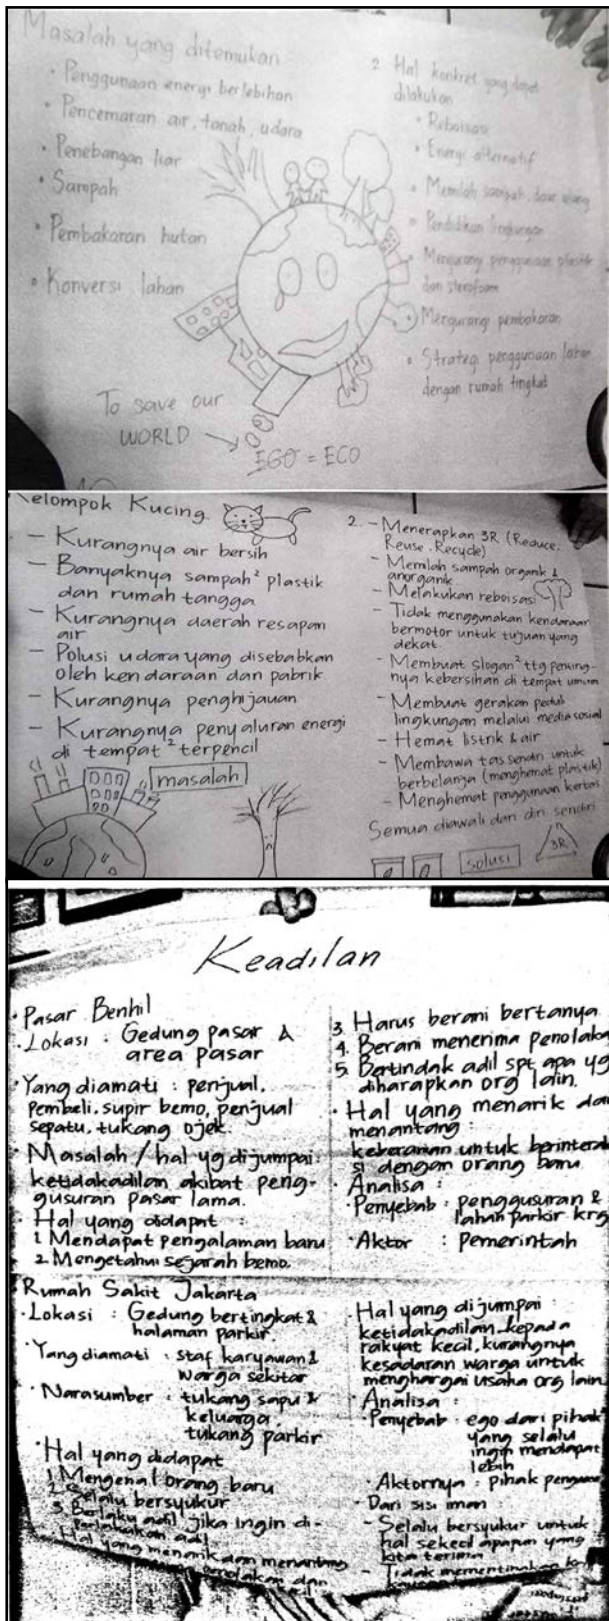 Masalah yang ditemukan
• Penggunaan energi berlebihan
• Pencemaran air, tanah, udara
• Penebangan liar
• Sampah
• Pembakaran hutan
• Konversi lahan
To save our
WORLD
EGO = ECO
2 Hal konkret yang dapat
dilakukan
• Reboisasi
• Energi alternatif
• Memilah sampah, daur ulang
• Pendidikan lingkungan
• Mengurangi penggunaan plastik
dan sterofoam
• Mengurangi pembakaran
• Strategi penggunaan lahan
dengan rumah tingkat
Kelompok Kucing
- Kurangnya air bersih
- Banyaknya sampah² plastik
dan rumah tangga
- Kurangnya daerah resapan
air
- Polusi udara yang disebabkan
oleh kendaraan dan pabrik
- Kurangnya penghijauan
- Kurangnya penyaluran energi
di tempat² terpencil
masalah
2. - Menerapkan 3R (Reduce.
Reuse. Recycle)
- Memilah sampah organik &
anorganik
- Melakukan reboisasi
- Tidak menggunakan kendaraan
bermotor untuk tujuan yang
dekat.
- Membuat slogan² ttg pening-
nya kebersihan di tempat umum
- Membuat gerakan peduli
lingkungan melalui media sosial
- Hemat listrik & air
- Membawa tas sendiri untuk
berbelanja (menghemat plastik)
- Menghemat penggunaan kertas
Semua diawali dari diri sendiri
solusi
3R
Keadilan
• Pasar Benhil
• Lokasi : Gedung pasar &
area pasar
• Yang diamati : penjual,
pembeli, supir bemo, penjual
sepatu, tukang ojek.
• Masalah / hal yg dijumpai:
ketidakadilan akibat peng-
gusuran pasar lama.
• Hal yang didapat :
1. Mendapat pengalaman baru
2. Mengetahui sejarah bemo.
3. Harus berani bertanya
4. Berani menerima penolaka
5. Bertindak adil spt apa yg
diharapkan org lain.
• Hal yang menarik dan
menantang :
keberanian untuk berinterak
si dengan orang baru
• Analisa :
• Penyebab : penggusuran &
lahan parkir krg
• Aktor : Pemerintah
Rumah Sakit Jakarta
• Lokasi : Gedung bertingkat &
halaman parkir
• Yang diamati : staf karyawan &
warga sekitar
• Narasumber : tukang sapu &
keluarga,
tukang parkir
• Hal yang didapat
1. Mengenal orang baru
2. Selalu bersyukur
3. Berlaku adil jika ingin di-
perlakukan adil
• Hal yang menarik dan menantang
penolakan dan
• Hal yang dijumpai :
ketidakadilan kepada
rakyat kecil, kurangnya
kesadaran warga untuk
menghargai usaha org lain
• Analisa :
• Penyebab : ego dari pihak²
yang selalu
ingin mendapat
lebih
• Aktornya : pihak
• Dari sisi iman
- Selalu bersyukur untuk
hal sekecil apapun yang
kita terima
- Tidak mementingkan